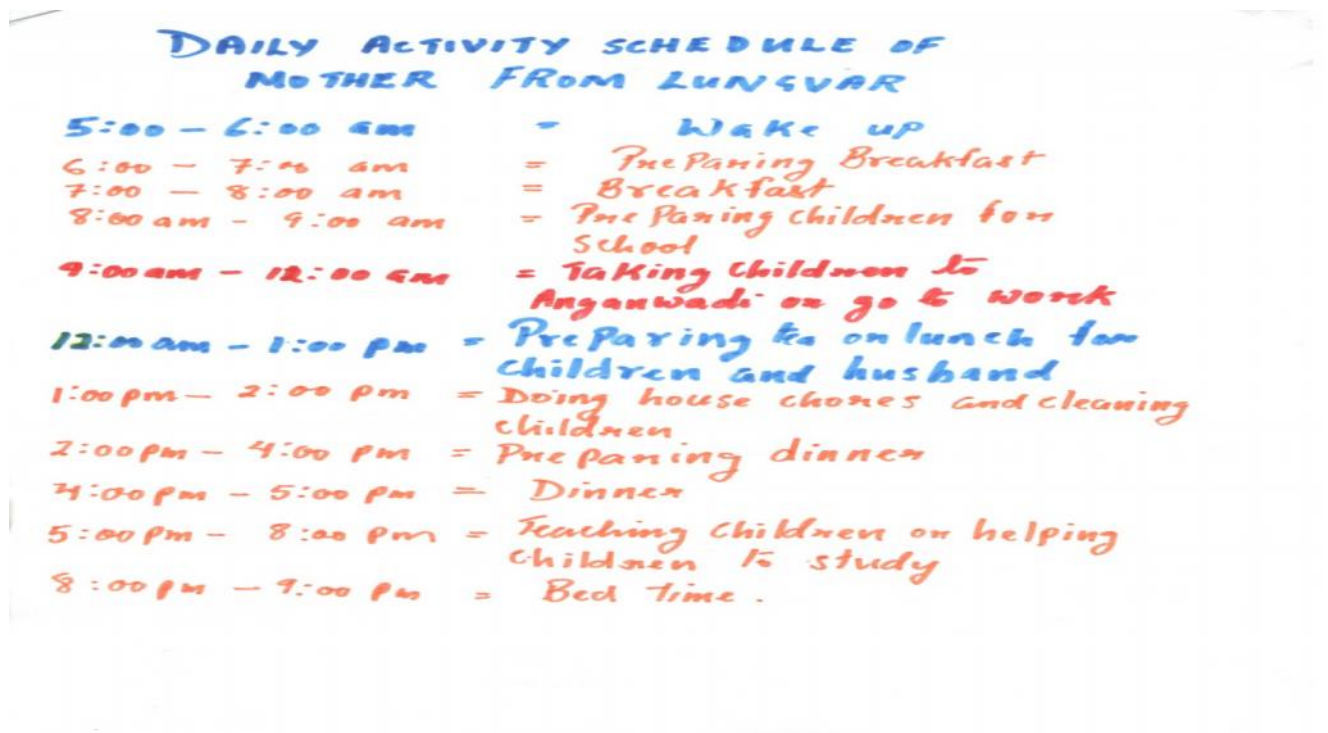 DAILY ACTIVITY SCHEDULE OF
MOTHER FROM LUNGVAR
5:00 - 6:00 am = Wake up
6:00 - 7:00 am = Preparing Breakfast
7:00 - 8:00 am = Breakfast
8:00 am - 9:00 am = Preparing children for
School
9:00 am - 12:00 am = Taking Children to
Anganwadi or go to work
12:00 am - 1:00 pm = Preparing on lunch for
children and husband
1:00 pm - 2:00 pm = Doing house chores and cleaning
children
2:00 pm - 4:00 pm = Preparing dinner
4:00 pm - 5:00 pm = Dinner
5:00 pm - 8:00 pm = Teaching children or helping
children to study
8:00 pm - 9:00 pm = Bed Time.